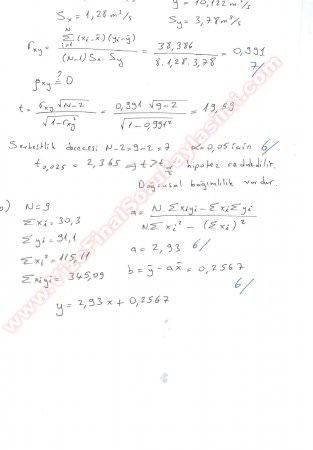 ȳ = 10,122 m³/s
Sx = 1,28 m³/s
Sy = 3,78 m³/s
rxy = Σ(i=1..N) (xi-x̄)(yi-ȳ) / (N-1) Sx. Sy = 38,386 / 8.1,28.3,78 = 0,991
7/
ρxy ?= 0
t = rxy √N-2 / √1-rxy² = 0,991 √9-2 / √1-0,991² = 19,59
Serbestlik derecesi N-2=9-2=7 α=0,05 için 6/
t0,025 = 2,365 ⇒ t > tα/2 hipotez reddedilir.
Doğrusal bağımlılık vardır.
b) N=9
Σxi = 30,3
Σyi = 91,1
Σxi² = 115,11
Σxiyi = 345,09
a = NΣxiyi - ΣxiΣyi / NΣxi² - (Σxi)²
a = 2,93 6/
b = ȳ - ax̄ = 0,2567
6/
y = 2,93x + 0,2567